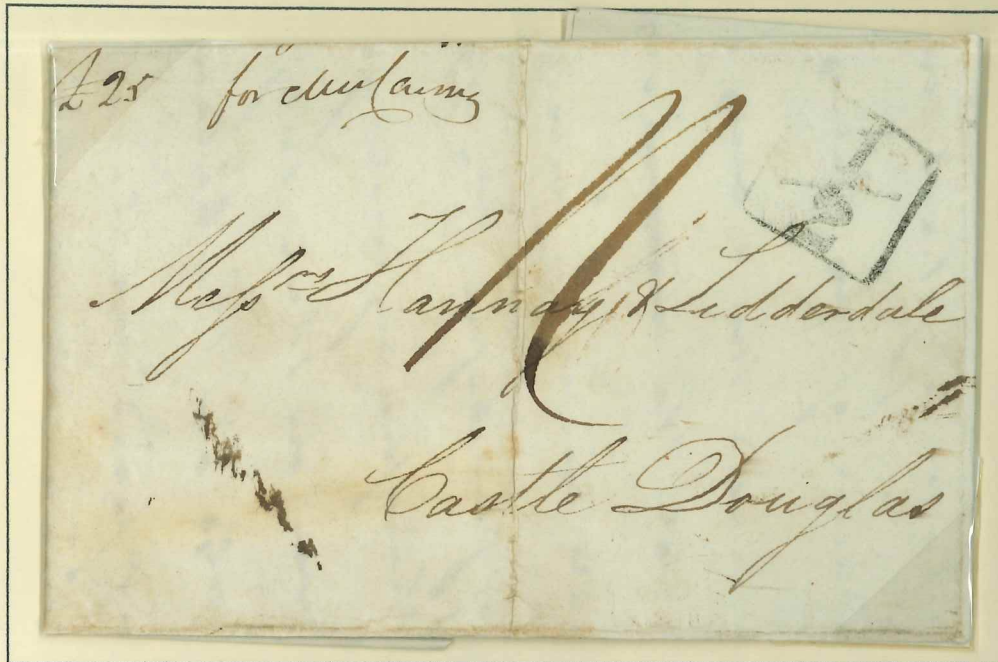 £25 for
Messrs Hannay & Lidderdale
Castle Douglas